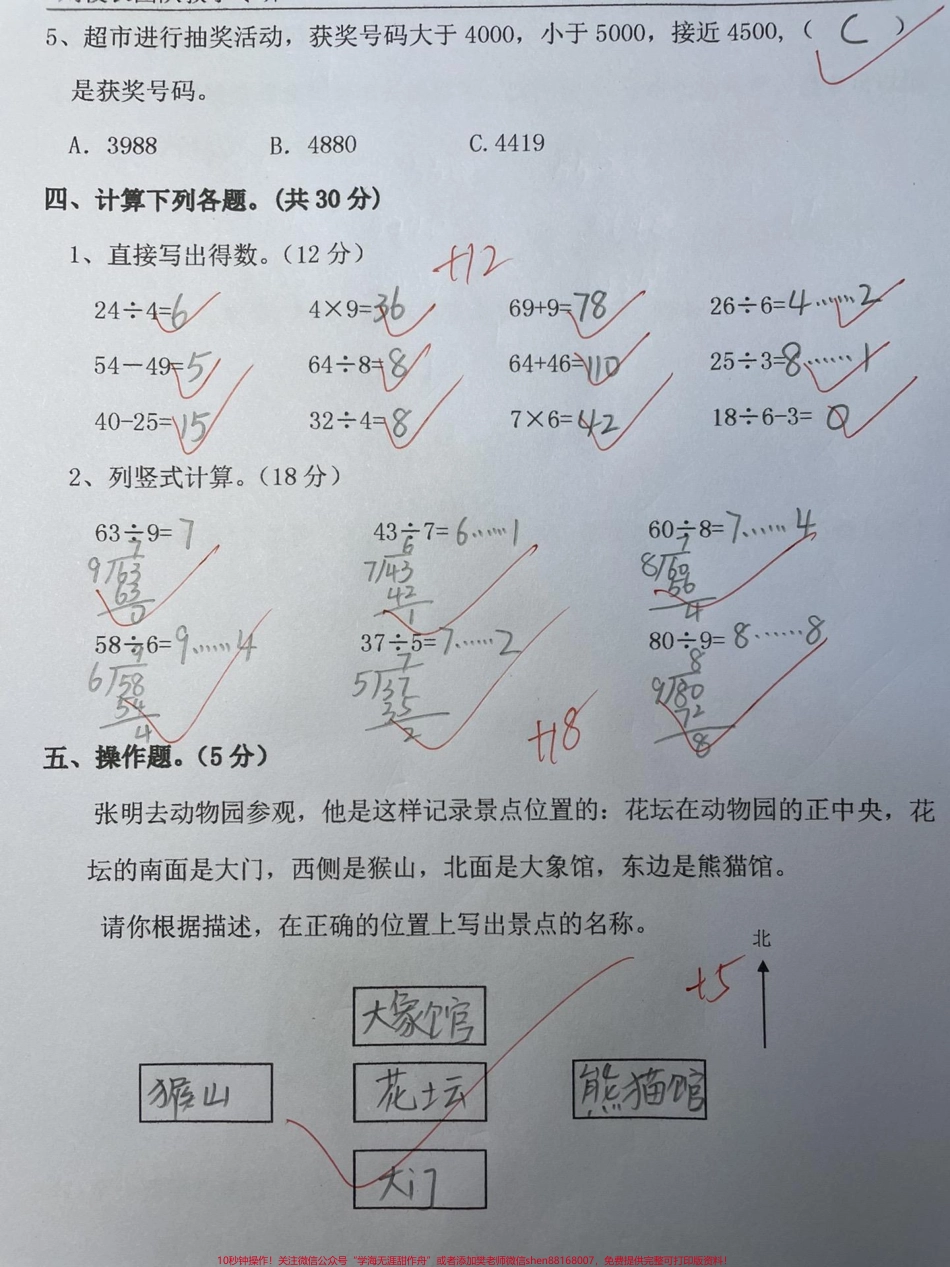 5、超市进行抽奖活动，获奖号码大于 4000，小于 5000，接近 4500,（ C ）
是获奖号码。
A. 3988 B. 4880 C. 4419
四、计算下列各题。(共 30 分)
1、直接写出得数。（12 分） +12
24÷4=6 4×9=36 69+9=78 26÷6=4……2
54－49=5 64÷8=8 64+46=110 25÷3=8……1
40-25=15 32÷4=8 7×6=42 18÷6-3= 0
2、列竖式计算。（18 分）
63÷9=7 43÷7=6……1 60÷8=7……4
7 6 7
9/63 7/43 8/60
63 42 56
0 1 4
58÷6=9……4 37÷5=7……2 80÷9=8……8
9 7 8
6/58 5/37 9/80
54 35 72
4 2 8
+18
五、操作题。（5 分）
张明去动物园参观，他是这样记录景点位置的：花坛在动物园的正中央，花
坛的南面是大门，西侧是猴山，北面是大象馆，东边是熊猫馆。
请你根据描述，在正确的位置上写出景点的名称。
北
+5
大象馆
猴山 花坛 熊猫馆
大门
10秒钟操作！关注微信公众号“学海无涯甜作舟”或者添加樊老师微信shen88168007，免费提供完整可打印版资料！